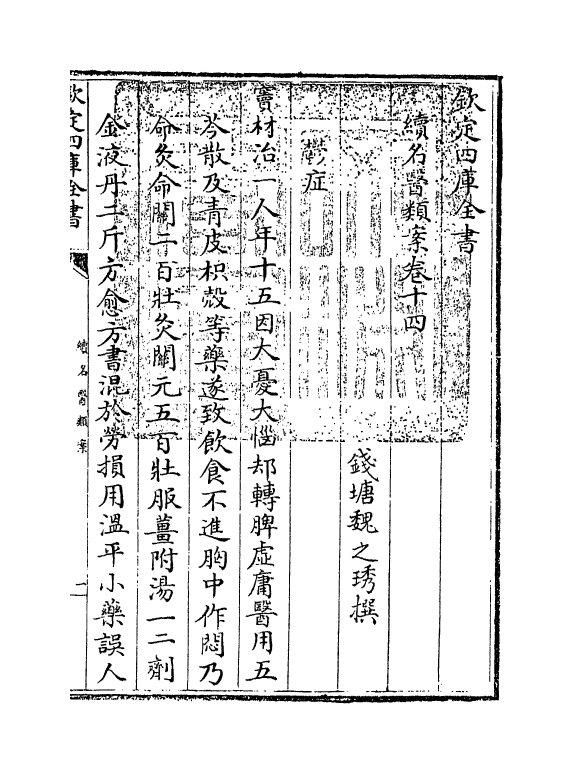 欽定四庫全書
續名醫類案卷十四
錢塘魏之琇撰
鬱症
竇材治一人年十五因大憂大惱却轉脾虛庸醫用五
苓散及青皮枳殼等藥遂致飲食不進胸中作悶乃
命灸命關二百壯灸關元五百壯服薑附湯一二劑
金液丹二斤方愈方書混於勞損用溫平小藥誤人
欽定四庫全書
續名醫類案